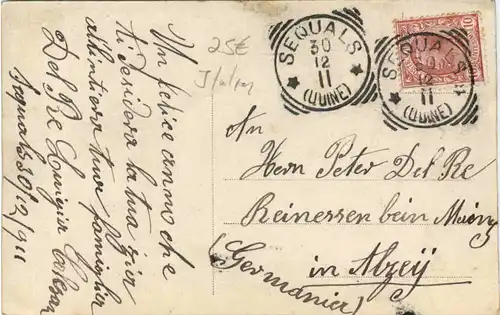 Un felice anno che
ti desidera la tua zia
all'intiera tua famiglia
Del Re Luigia
Sequals 30/12/911
25€
SEQUALS
30
12
11
(UDINE)
SEQUALS
12
11
(UDINE)
10
An
Hern Peter Del Re
Reinessen bein Mainz
in Alzeÿ
(Germanier)